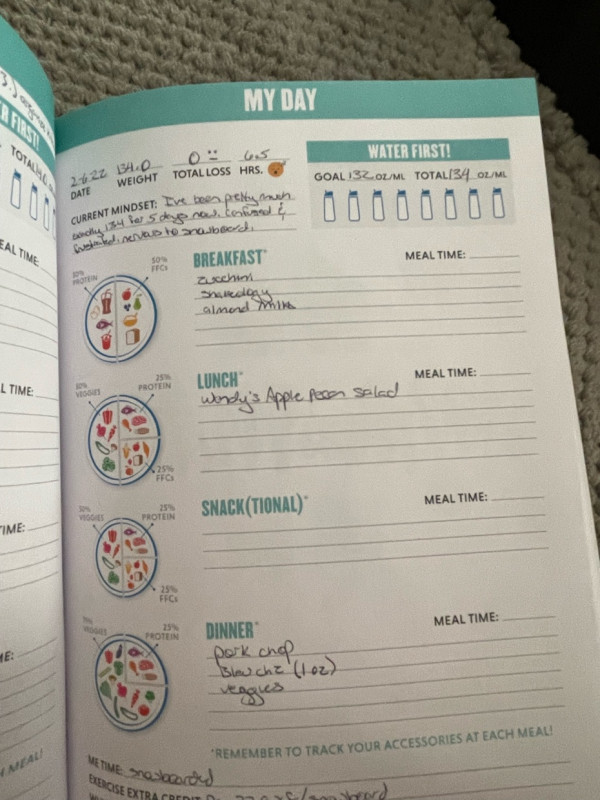 MY DAY
2-6-22 134.0 0 6.5
DATE WEIGHT TOTAL LOSS HRS.
WATER FIRST!
GOAL 132 OZ/ML TOTAL 134 OZ/ML
CURRENT MINDSET: I've been pretty much
exactly 134 for 5 days now. Confused &
frustrated. nervous to snowboard.
BREAKFAST*
MEAL TIME:
50% PROTEIN
50% FFCs
zucchini
shakeology
almond milk
LUNCH*
MEAL TIME:
50% VEGGIES
25% PROTEIN
25% FFCs
Wendy's Apple Pecan Salad
SNACK(TIONAL)*
MEAL TIME:
50% VEGGIES
25% PROTEIN
25% FFCs
DINNER*
MEAL TIME:
75% VEGGIES
25% PROTEIN
pork chop
Bleu chz (1 oz)
veggies
*REMEMBER TO TRACK YOUR ACCESSORIES AT EACH MEAL!
ME TIME: snowboarded
EXERCISE EXTRA CREDIT /snowboard